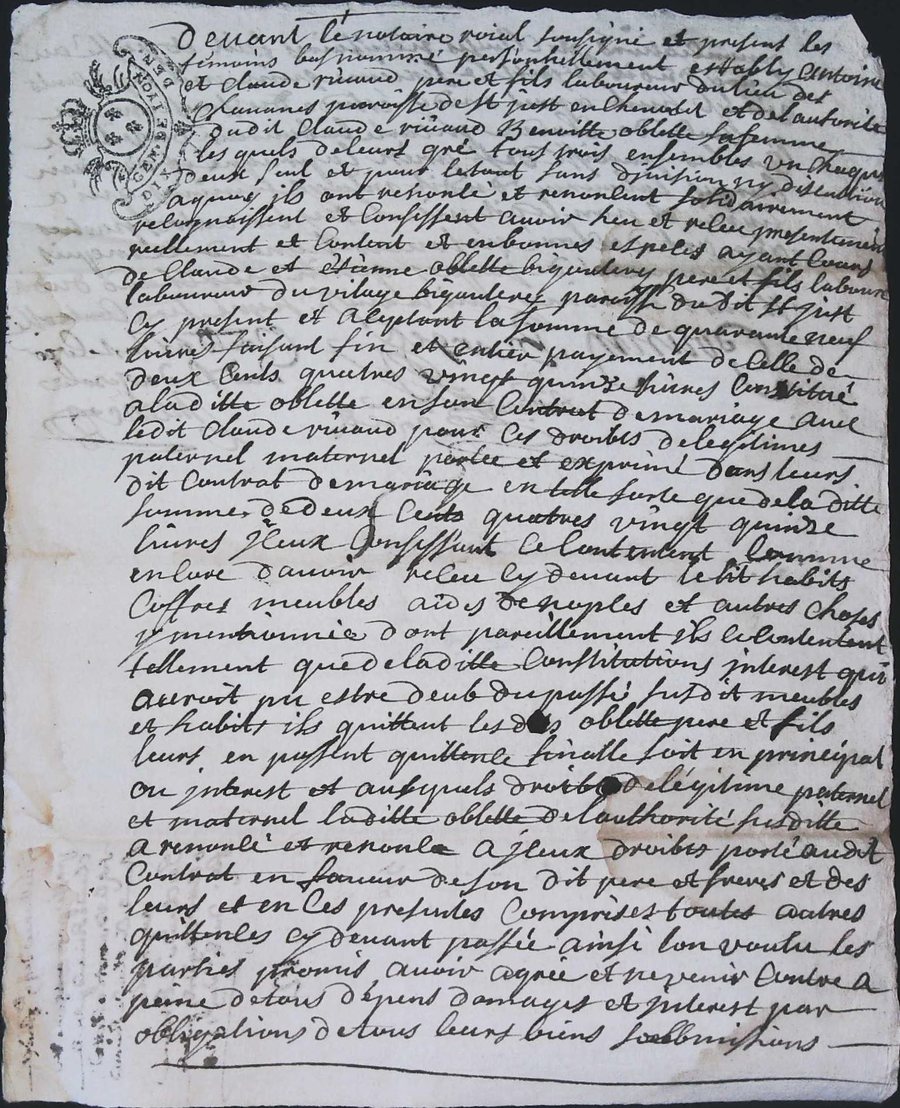 GEN. DE LYON
DIX DEN
devant le notaire roial sousigné et present les
temoins bas nommé personnellement estably antoine
et claude rivaud pere et fils laboureur du lieu des
chavanes paroisse de st just en chevalet et de l'autorite
dudit Claude rivaud Benoitte oblette sa femme
les quels de leurs gré tous trois ensembles un chacquns
deux seul et pour le tout sans division ny discution
a quoy ils ont renoncé et renoncent solidairement
reconnaissent et Confessent avoir heu et receu presentement
reellement et Content et en bonnes especes ayant Cours
de Claude et étienne oblette bigaulery pere et fils laboureur
laboureur du vilage bigaulerey paroisse du dit st just
Cy present et aceptant la somme de quarante neuf
livres faisant fin et entier payement de Celle de
deux Cents quatres vingt quinze livres Constitué
a laditte oblette en son Contrat de mariage avec
ledit Claude rivaud pour Ces droibts de legitimes
paternel maternel portée et exprimé dans leurs
dit Contrat de mariage en telle sorte que de la ditte
somme de deux Cents quatres vingt quinze
livres jceux Confessant Ce Contentent Comme
encore d'avoir receu Cy devant le lit habits
Coffres meubles aides de noples et autres choses
y mentionnée dont pareillement ils ce Contentent
tellement que de laditte Constitutions jnterest qui
auroit pu estre deub du passé susdit meubles
et habits ils quittent les dits oblette pere et fils
leurs en passent quittence finalle soit en principal
ou jnterest et ausquels droibts de légitime paternel
et maternel laditte oblette de l'authorité susditte
a renoncé et renonce a jceux droibts porté audit
Contrat en faveur de son dit pere et freres et des
leurs et en Ces presentes Comprises toutes autres
quittences cy devant passée ainsi l'on voulu les
parties promis avoir agrée et ne venir Contre a
peine de tous dépens damages et jnterest par
obligations de tous leurs biens soubmissions